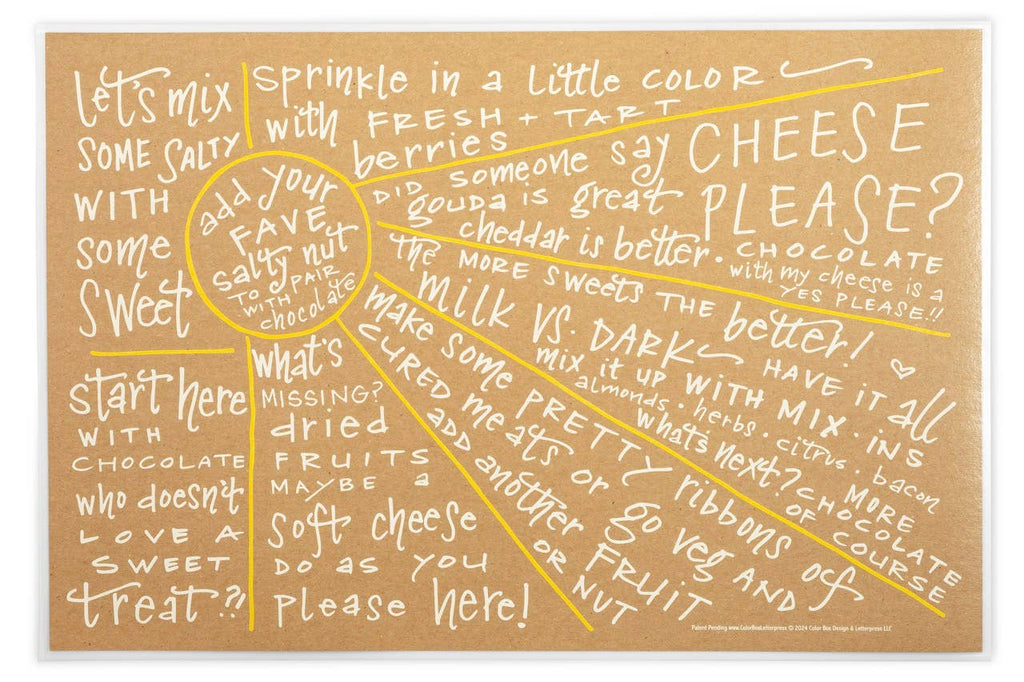 let's mix
SOME SALTY
WITH
some
Sweet
add your
FAVE
salty nut
TO PAIR
WITH
chocolate
sprinkle in a little COLOR
with FRESH + TART
berries
DID someone say CHEESE
gouda is great PLEASE?
cheddar is better. CHOCOLATE
with my cheese is a
YES PLEASE!!
the MORE SWEETS THE better!
milk VS. DARK HAVE IT all
mix it up WITH MIX·INS
almonds · herbs · citrus · bacon
what's next? MORE
CHOCOLATE
OF COURSE
make some PRETTY ribbons of
CURED meats or go veg AND
ADD another FRUIT
OR NUT
what's
MISSING?
dried
FRUITS
MAYBE a
soft cheese
DO AS YOU
please here!
start here
WITH
CHOCOLATE
who doesn't
LOVE A
SWEET
treat?!
Patent Pending www.ColorBoxLetterpress © 2024 Color Box Design & Letterpress LLC